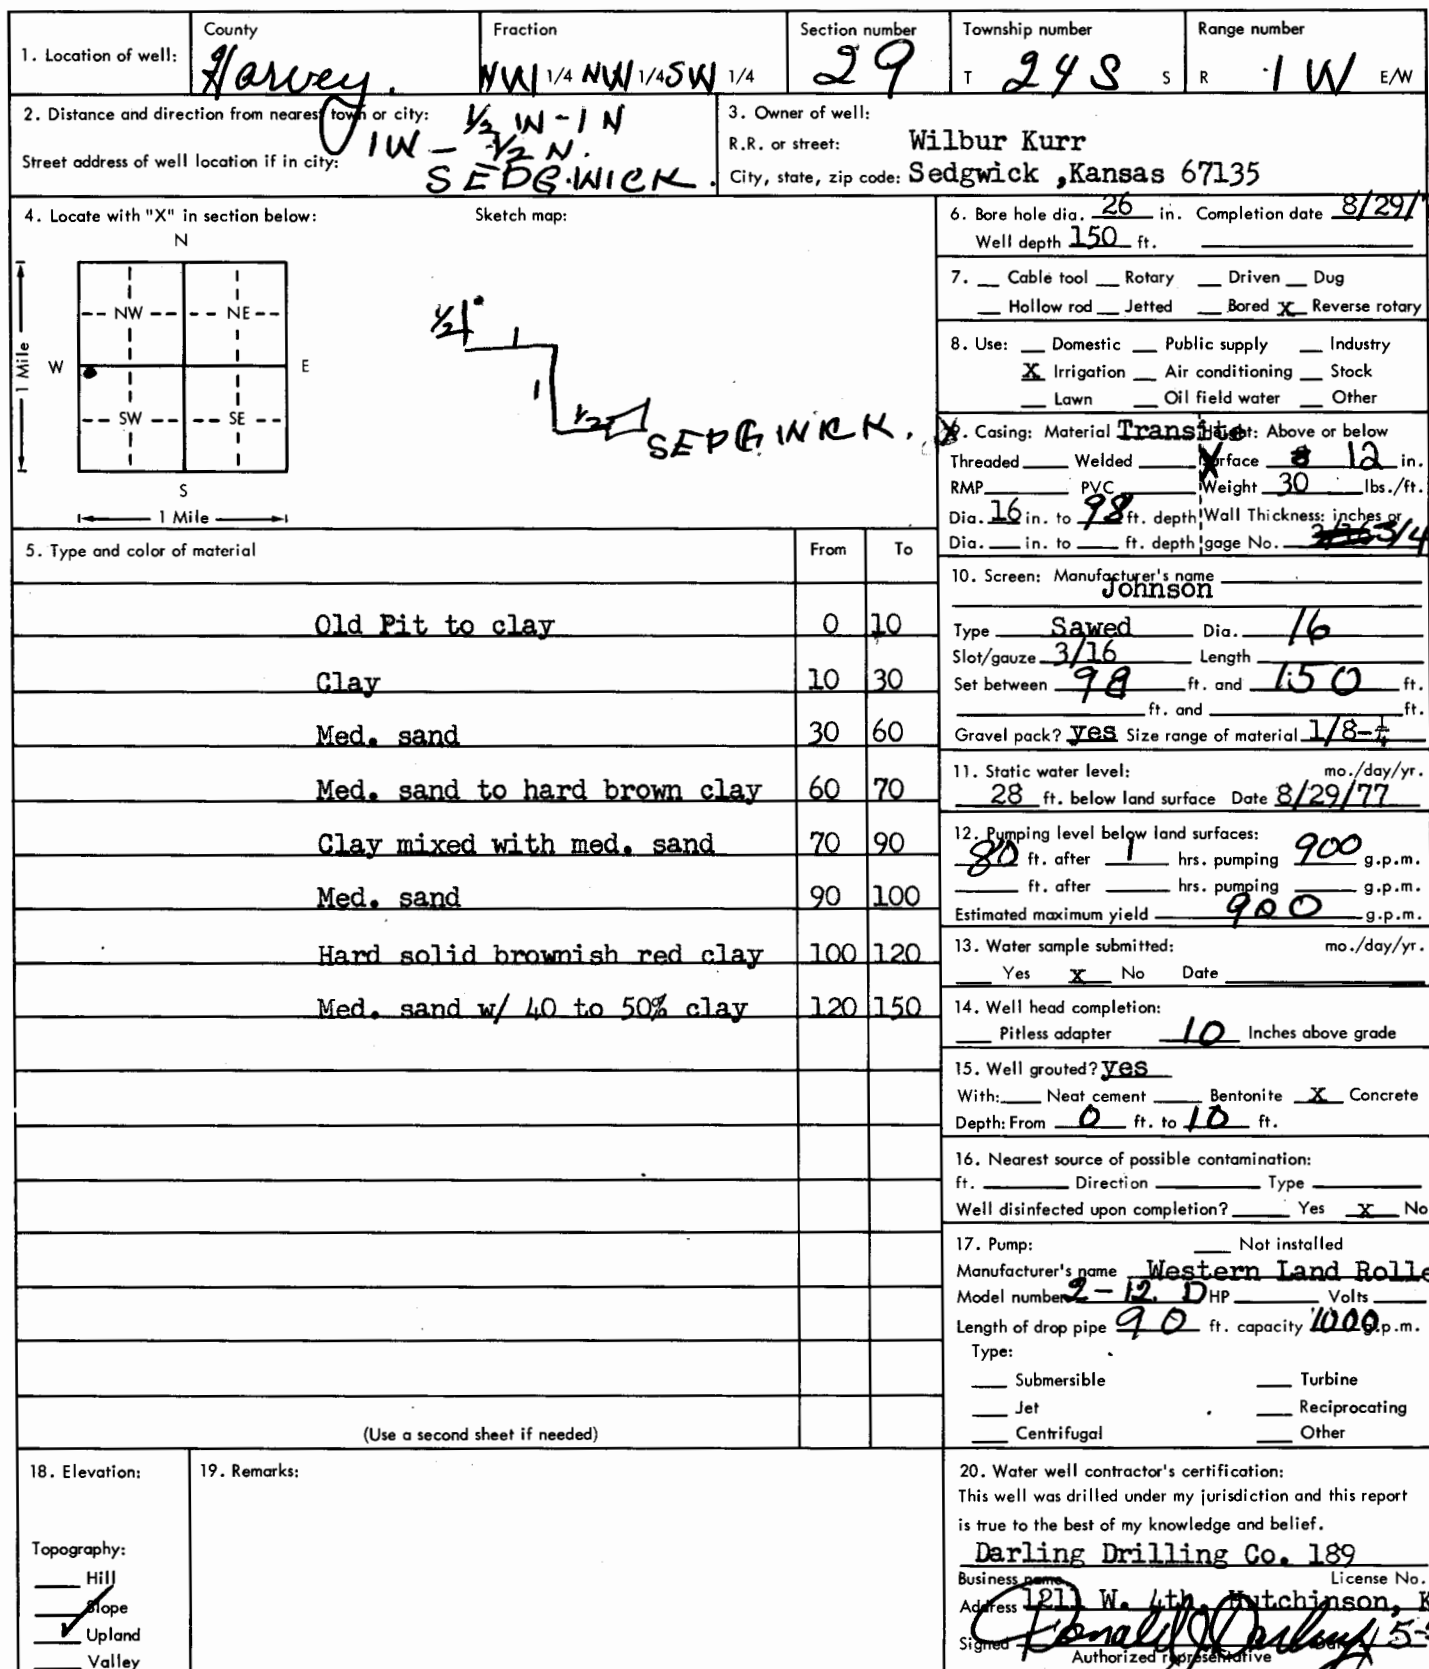 1. Location of well: County Harvey. Fraction NW 1/4 NW 1/4 SW 1/4 Section number 29 Township number T 24 S S Range number R 1 W E/W
2. Distance and direction from nearest town or city: 1/2 W - 1 N
1W - 1/2 N.
Street address of well location if in city: SEDGWICK.
3. Owner of well:
R.R. or street: Wilbur Kurr
City, state, zip code: Sedgwick ,Kansas 67135
4. Locate with "X" in section below: Sketch map:
N
NW NE
W E
SW SE
S
1 Mile
1 Mile
1/2 1
1
1/2 SEDGWICK.
5. Type and color of material From To
Old Pit to clay 0 10
Clay 10 30
Med. sand 30 60
Med. sand to hard brown clay 60 70
Clay mixed with med. sand 70 90
Med. sand 90 100
Hard solid brownish red clay 100 120
Med. sand w/ 40 to 50% clay 120 150
(Use a second sheet if needed)
6. Bore hole dia. 26 in. Completion date 8/29/
Well depth 150 ft.
7. Cable tool Rotary Driven Dug
Hollow rod Jetted Bored X Reverse rotary
8. Use: Domestic Public supply Industry
X Irrigation Air conditioning Stock
Lawn Oil field water Other
9. Casing: Material Transite Height: Above or below
Threaded Welded Surface 12 in.
RMP PVC Weight 30 lbs./ft.
Dia. 16 in. to 98 ft. depth Wall Thickness: inches or
Dia. in. to ft. depth gage No. 3/4
10. Screen: Manufacturer's name
Johnson
Type Sawed Dia. 16
Slot/gauze 3/16 Length
Set between 98 ft. and 150 ft.
ft. and ft.
Gravel pack? yes Size range of material 1/8-1/4
11. Static water level: mo./day/yr.
28 ft. below land surface Date 8/29/77
12. Pumping level below land surfaces:
80 ft. after 1 hrs. pumping 900 g.p.m.
ft. after hrs. pumping g.p.m.
Estimated maximum yield 900 g.p.m.
13. Water sample submitted: mo./day/yr.
Yes X No Date
14. Well head completion:
Pitless adapter 10 Inches above grade
15. Well grouted? yes
With: Neat cement Bentonite X Concrete
Depth: From 0 ft. to 10 ft.
16. Nearest source of possible contamination:
ft. Direction Type
Well disinfected upon completion? Yes X No
17. Pump: Not installed
Manufacturer's name Western Land Rolle
Model number 2-12. D HP Volts
Length of drop pipe 90 ft. capacity 1000 g.p.m.
Type:
Submersible Turbine
Jet Reciprocating
Centrifugal Other
18. Elevation:
Topography:
Hill
Slope
✓ Upland
Valley
19. Remarks:
20. Water well contractor's certification:
This well was drilled under my jurisdiction and this report
is true to the best of my knowledge and belief.
Darling Drilling Co. 189
Business name License No.
Address 1211 W. 4th, Hutchinson, K
Signed Donald J Darling 5-
Authorized representative